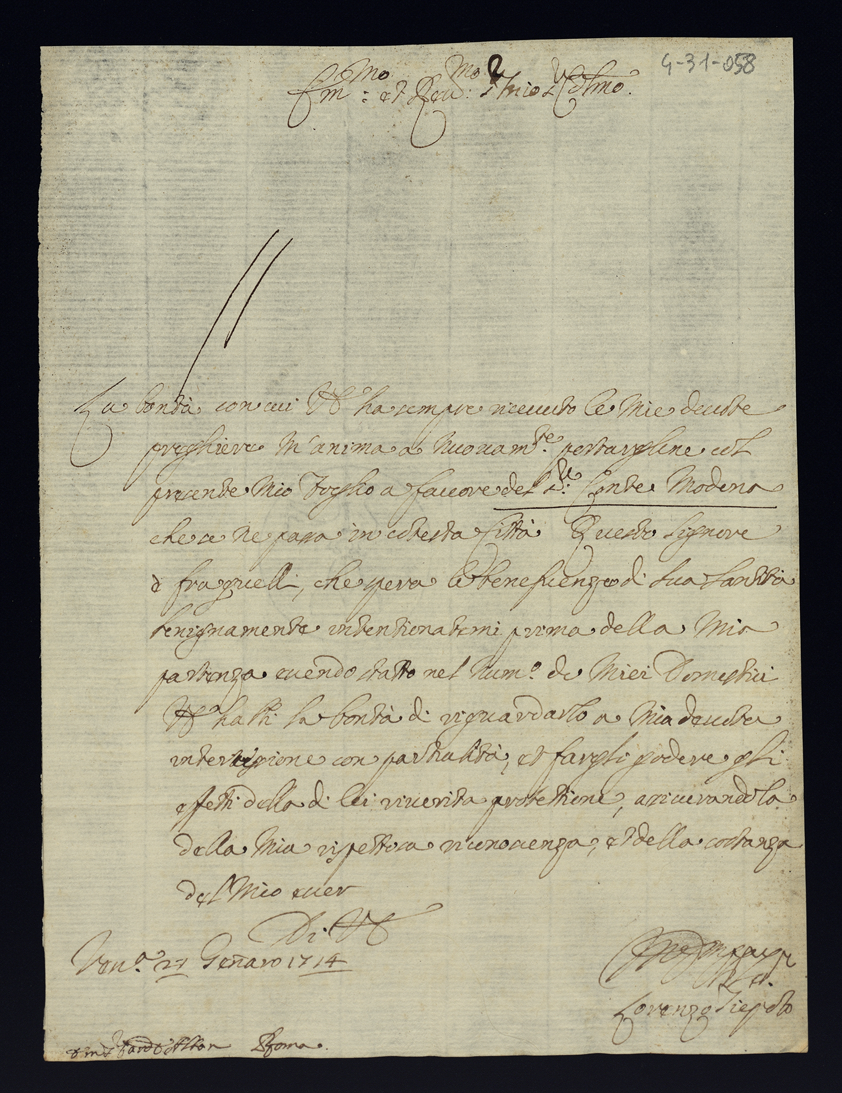 4-31-058
Em:mo et Reu:mo Sr mio Colmo.
La bontà con cui VE ha sempre riceuuto le mie deuote
preghiere m'anima à nuouam:te portargliene col
presente mio foglio a fauore del Sr: Conte Modena
che se ne passa in cotesta Città Questo Signore
è fra quelli, che spera le beneficenze di Sua Santità
benignamente intentionatemi prima della mia
partenza essendo stato nel num:o de miei Domestici
VE habbi la bontà di riguardarlo a mia deuota
intercessione con partialità, et fargli godere gli
effetti della di lei riuerita protettione, assicurandola
della mia rispettosa riconoscenza, et della costanza
del mio esser
Di VE
Ven:a 27 Genaro 1714
Lorenzo Tiepolo
Roma.